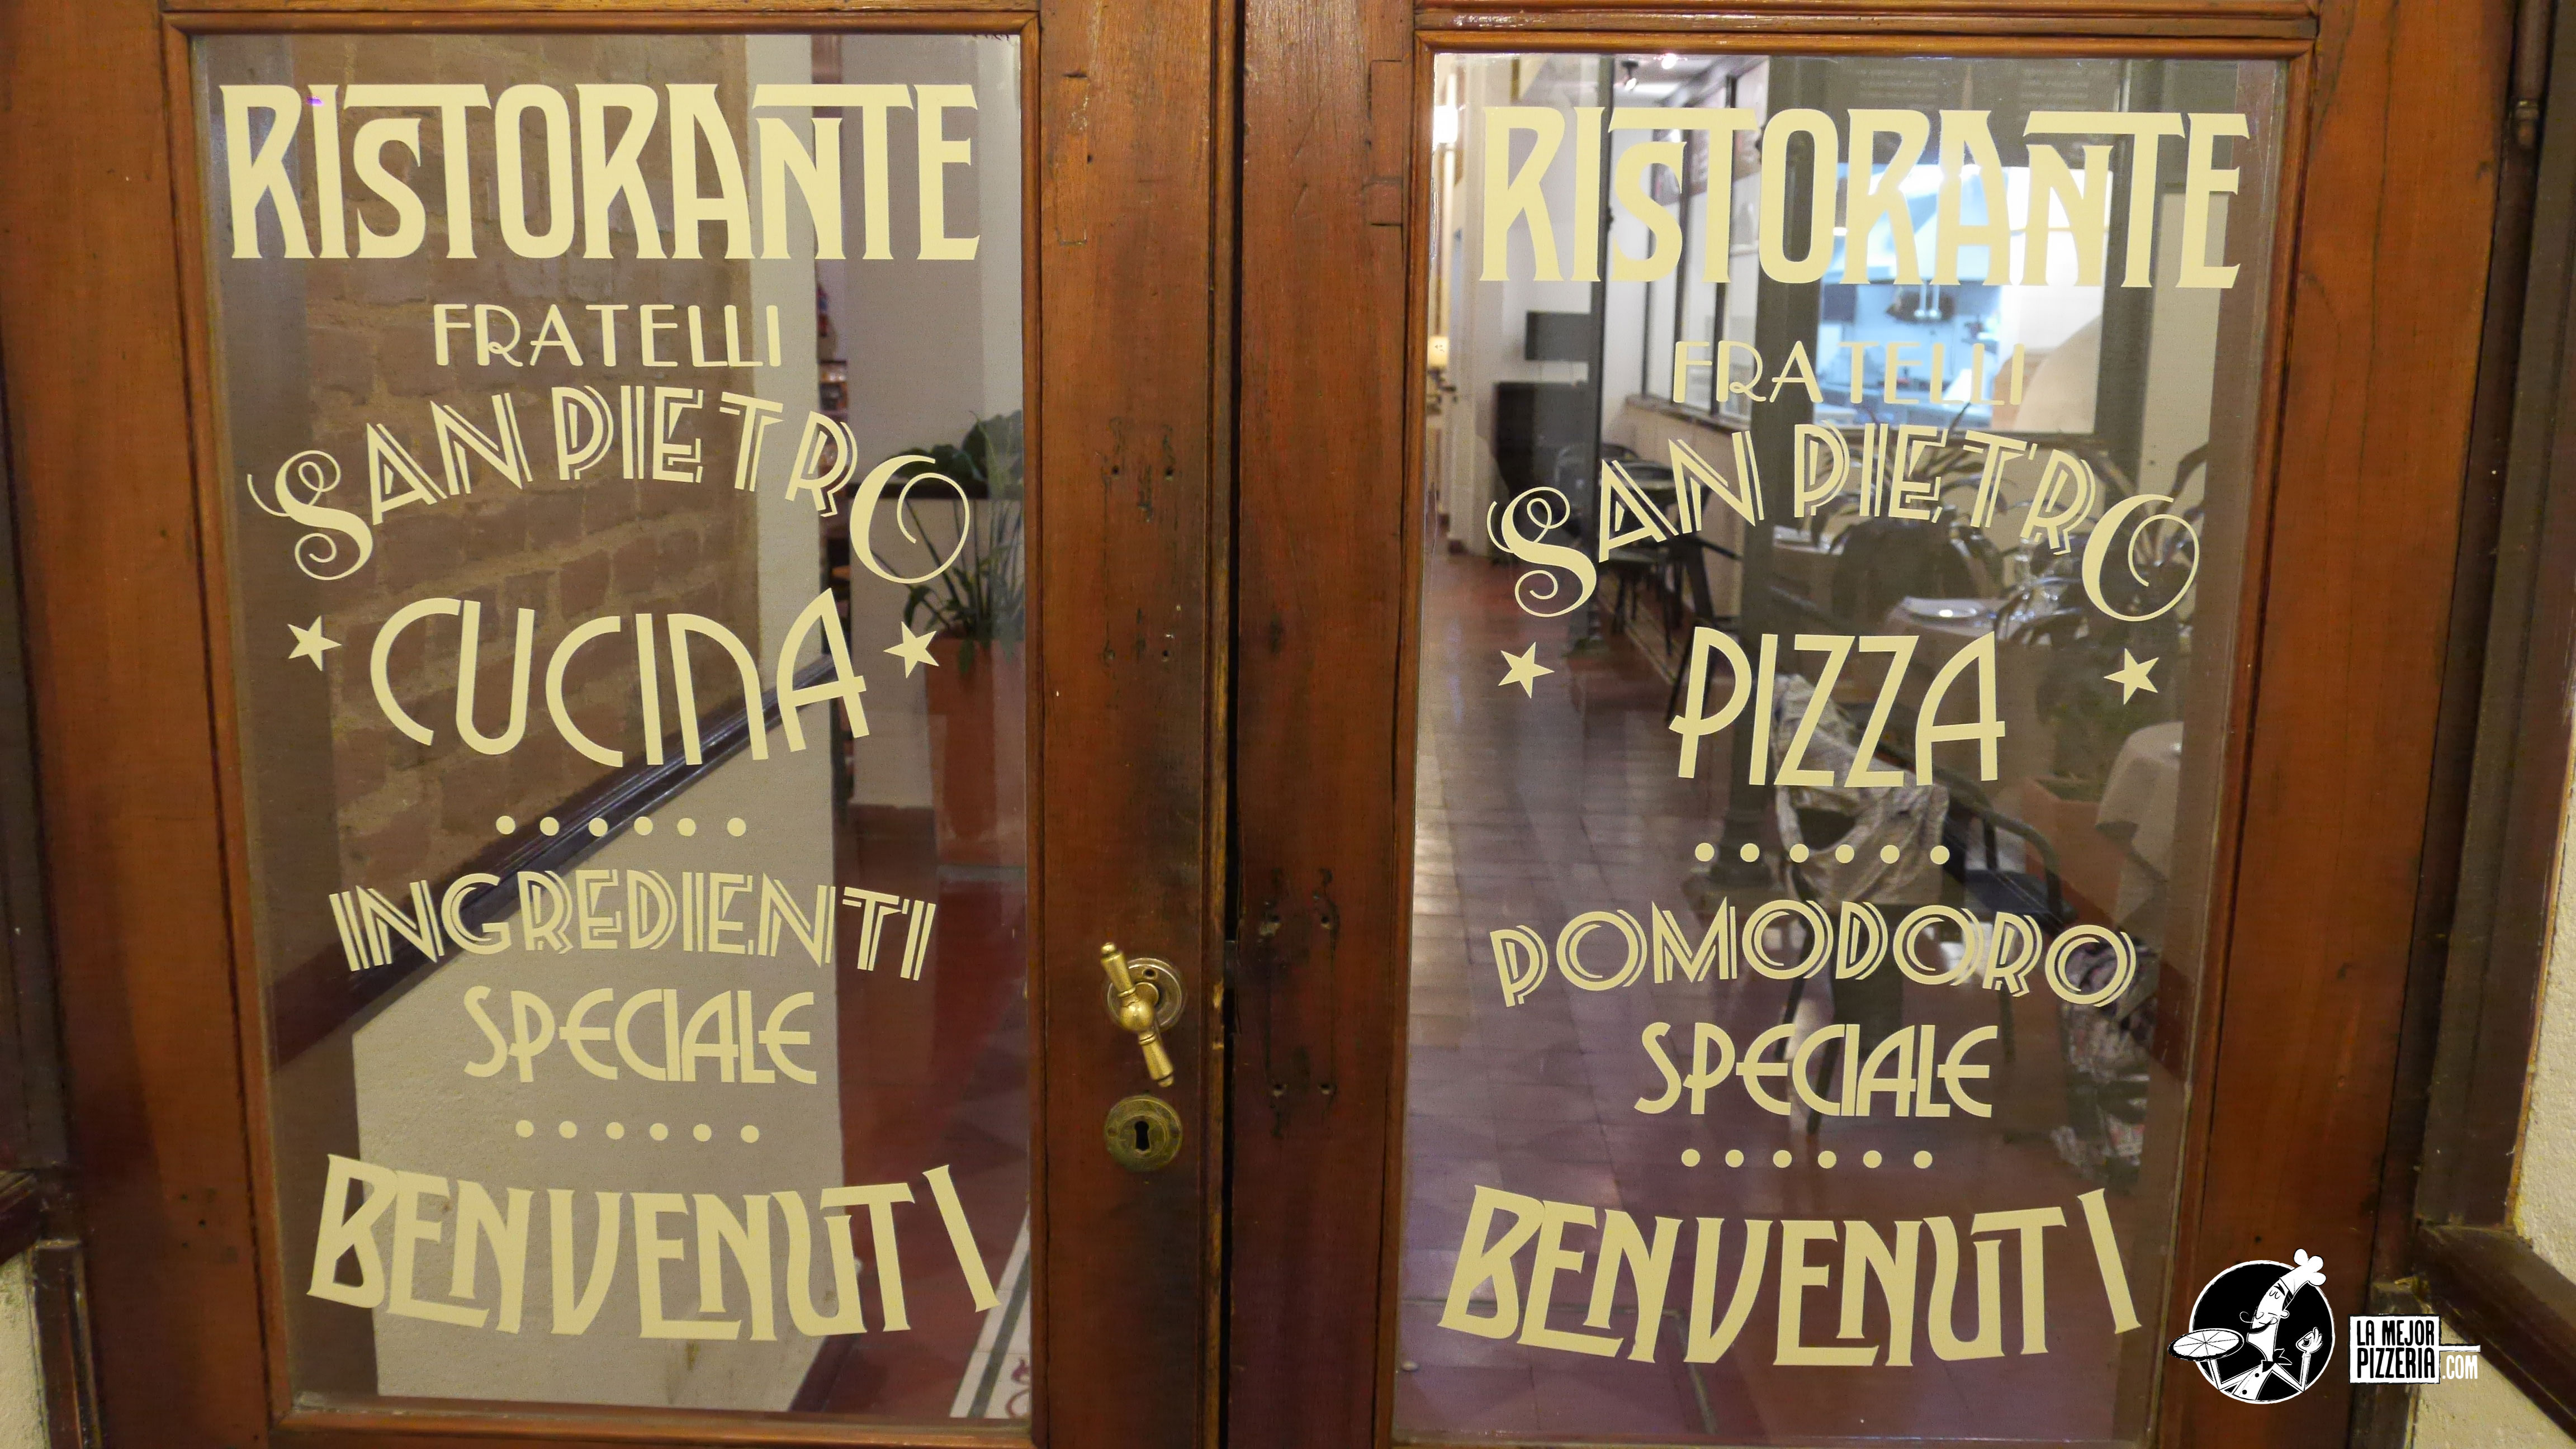 RISTORANTE
FRATELLI
SAN PIETRO
CUCINA
INGREDIENTI
SPECIALE
BENVENUTI
RISTORANTE
FRATELLI
SAN PIETRO
PIZZA
POMODORO
SPECIALE
BENVENUTI
LA MEJOR
PIZZERIA.COM